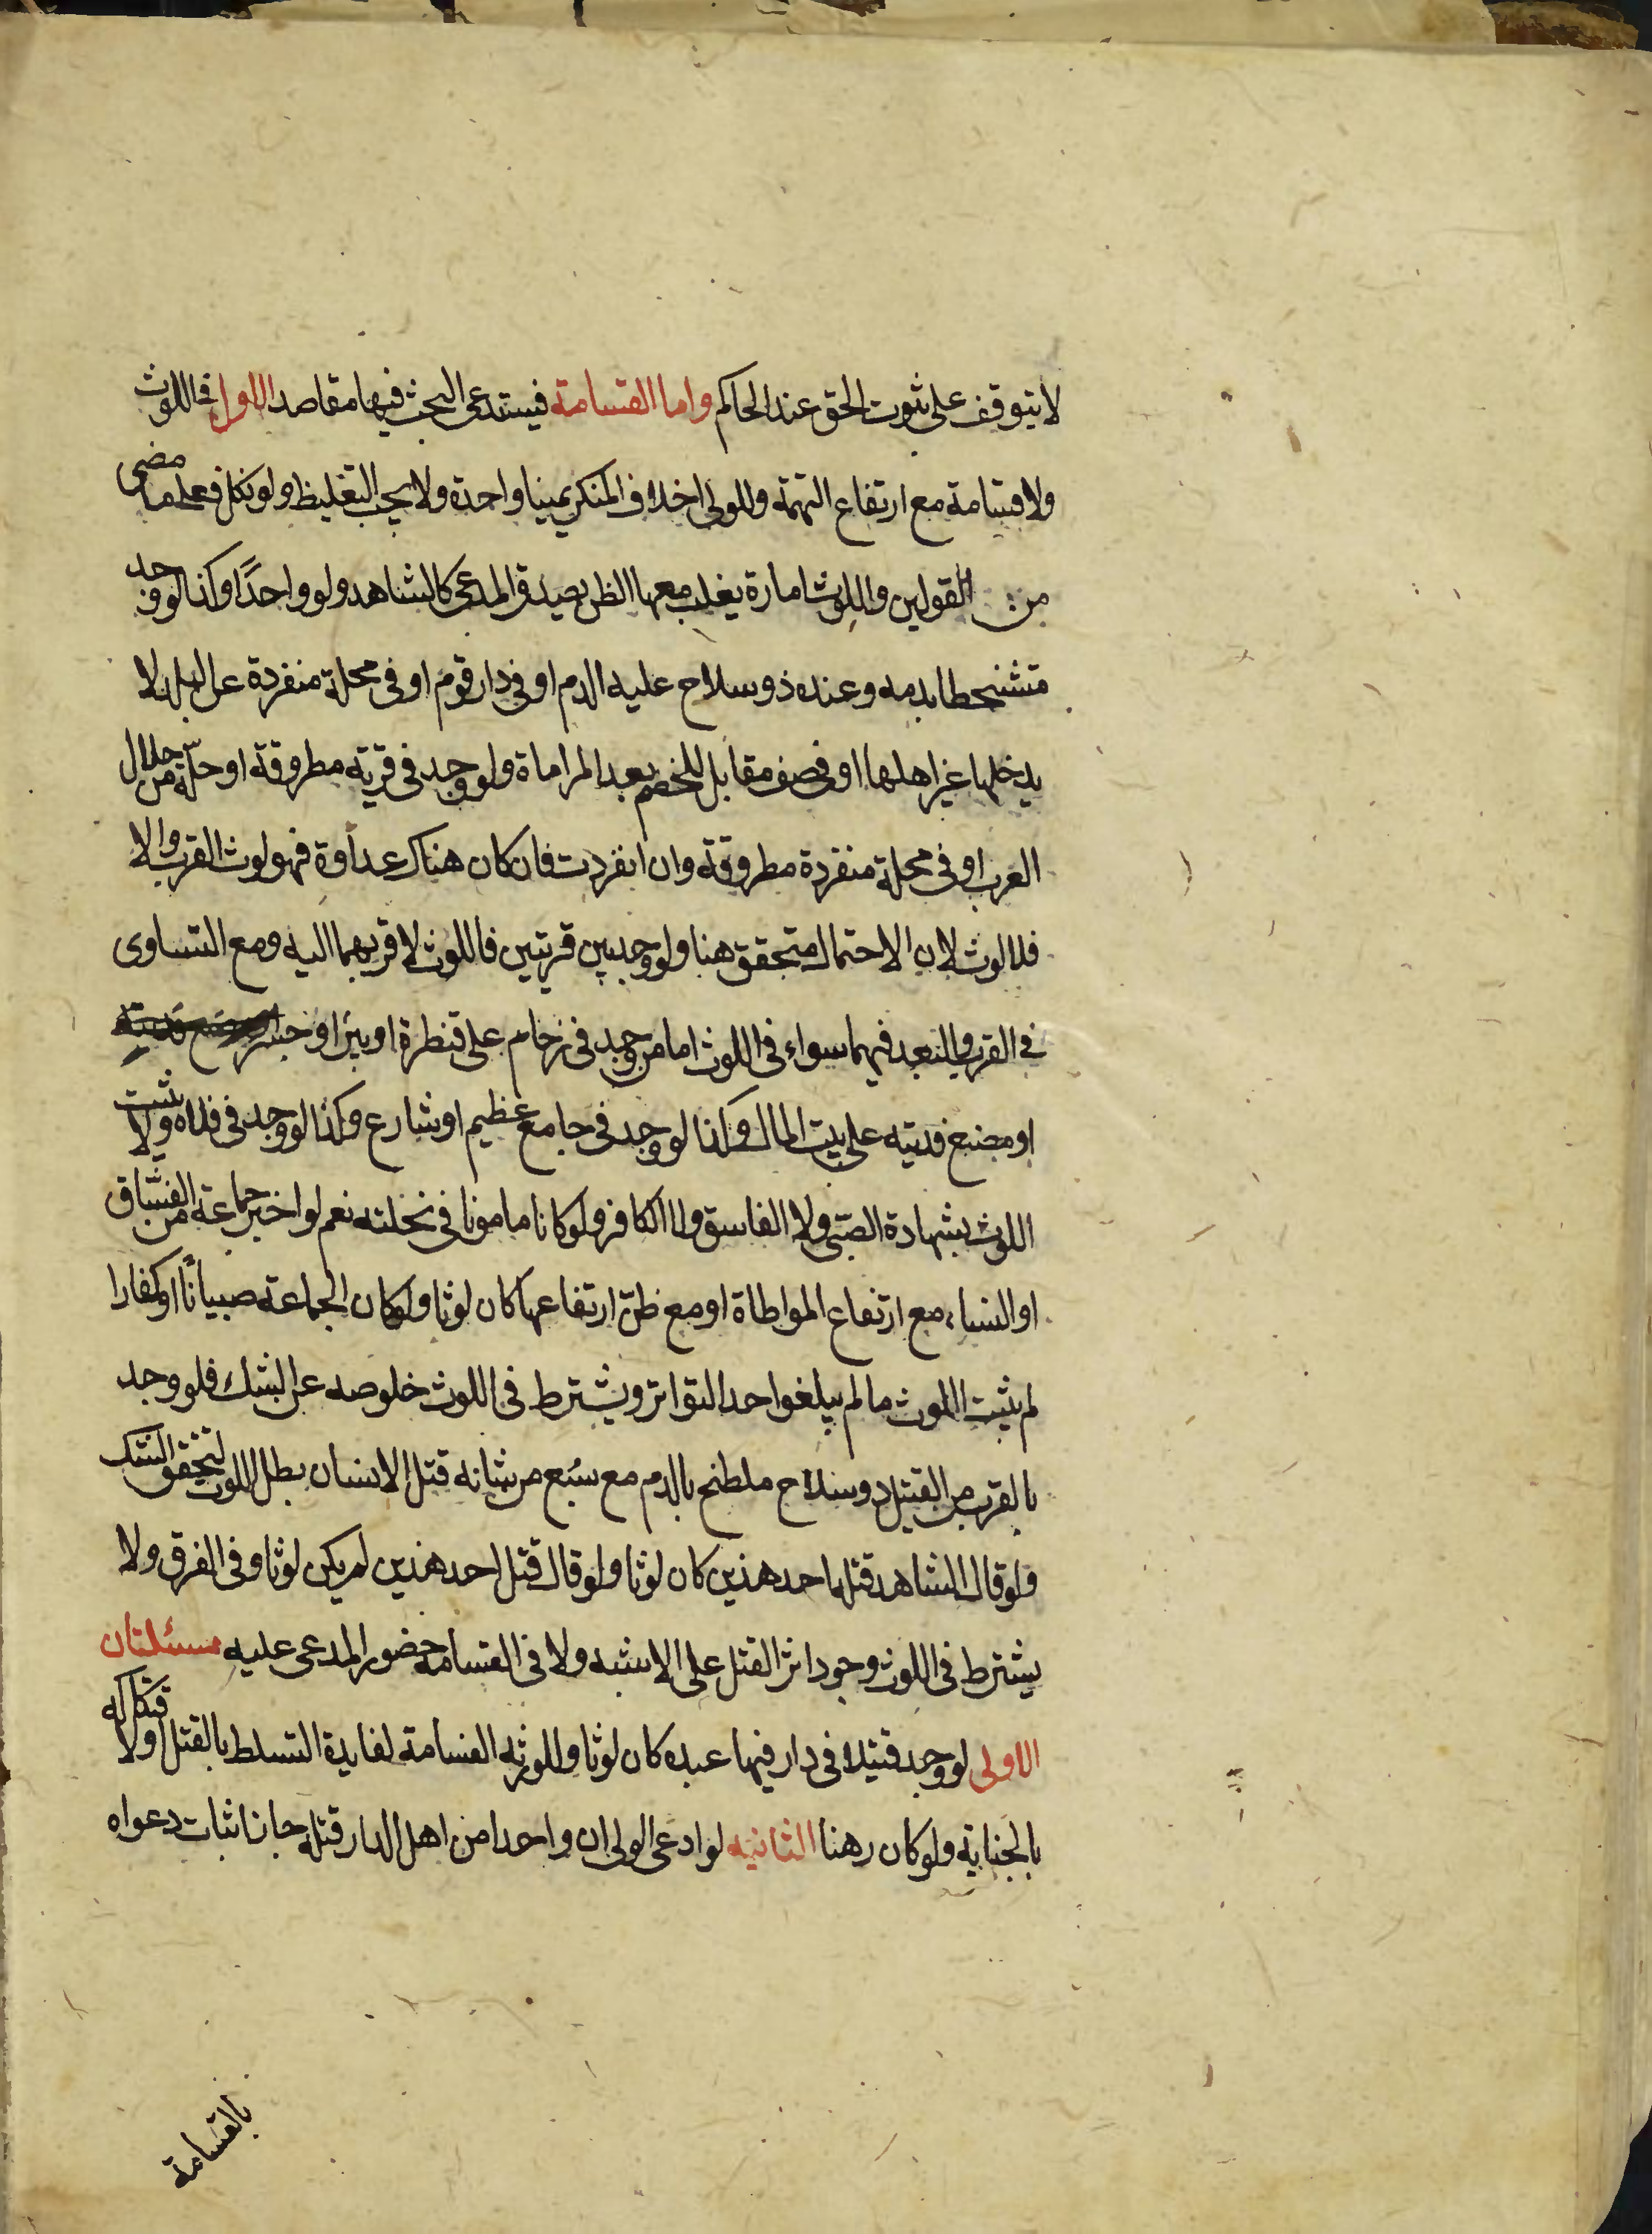 لا يتوقف على ثبوت الحق عند الحاكم واما القسامة فيستدعى البحث فيها مقاصد الاول في اللوث
ولا قسامة مع ارتفاع التهمة وللولى احلاف المنكر يمينا واحدة ولا يجب التغليظ ولو نكل فعلى ما مضى
من القولين واللوث امارة يغلب معها الظن بصدق المدعى كالشاهد ولو واحدًا وكذا لو وجد
متشحطا بدمه وعنده ذو سلاح عليه الدم او في دار قوم او في محلة منفردة عن البلد لا
يدخلها غير اهلها او في صف مقابل للخصم بعد المراماة ولو وجد في قرية مطروقة او حلّة من حلال
العرب او في محلة منفردة مطروقة وان انفردت فان كان هناك عداوة فهو لوث القرب والا
فلا لوث لان الاحتمال متحقق هنا ولو وجد بين قريتين فاللوث لاقربهما اليه ومع التساوى
في القرب والبعد فهما سواء في اللوث اما من وجد في زحام على قنطرة او بئر او جسر
او مصنع فديته على بيت المال وكذا لو وجد في جامع عظيم او شارع وكذا لو وجد في فلاة ولا يثبت
اللوث بشهادة الصبى ولا الفاسق ولا الكافر ولو كانا مامونا في نحلته نعم لو اخبر جماعة من الفساق
او النساء مع ارتفاع المواطاة او مع ظنّ ارتفاعها كان لوثا ولو كان الجماعة صبيانًا او كفارا
لم يثبت اللوث ما لم يبلغوا حد التواتر ويشترط في اللوث خلوصه عن الشك فلو وجد
بالقرب من القتيل ذو سلاح ملطخ بالدم مع سبع من شانه قتل الانسان بطل اللوث لتحقق الشك
ولو قال الشاهد قتله احد هذين كان لوثا ولو قال قتل احد هذين لم يكن لوثا وفي الفرق ولا
يشترط في اللوث وجود اثر القتل على الاشبه ولا في القسامة حضور المدعى عليه مسئلتان
الاولى لو وجد قتيلا في دار فيها عبده كان لوثا وللورثه القسامة لفايدة التسلط بالقتل ولافتكاكه
بالجناية ولو كان رهنا الثانيه لو ادعى الولى ان واحدا من اهل الدار قتله جاز اثبات دعواه
بالقسامة